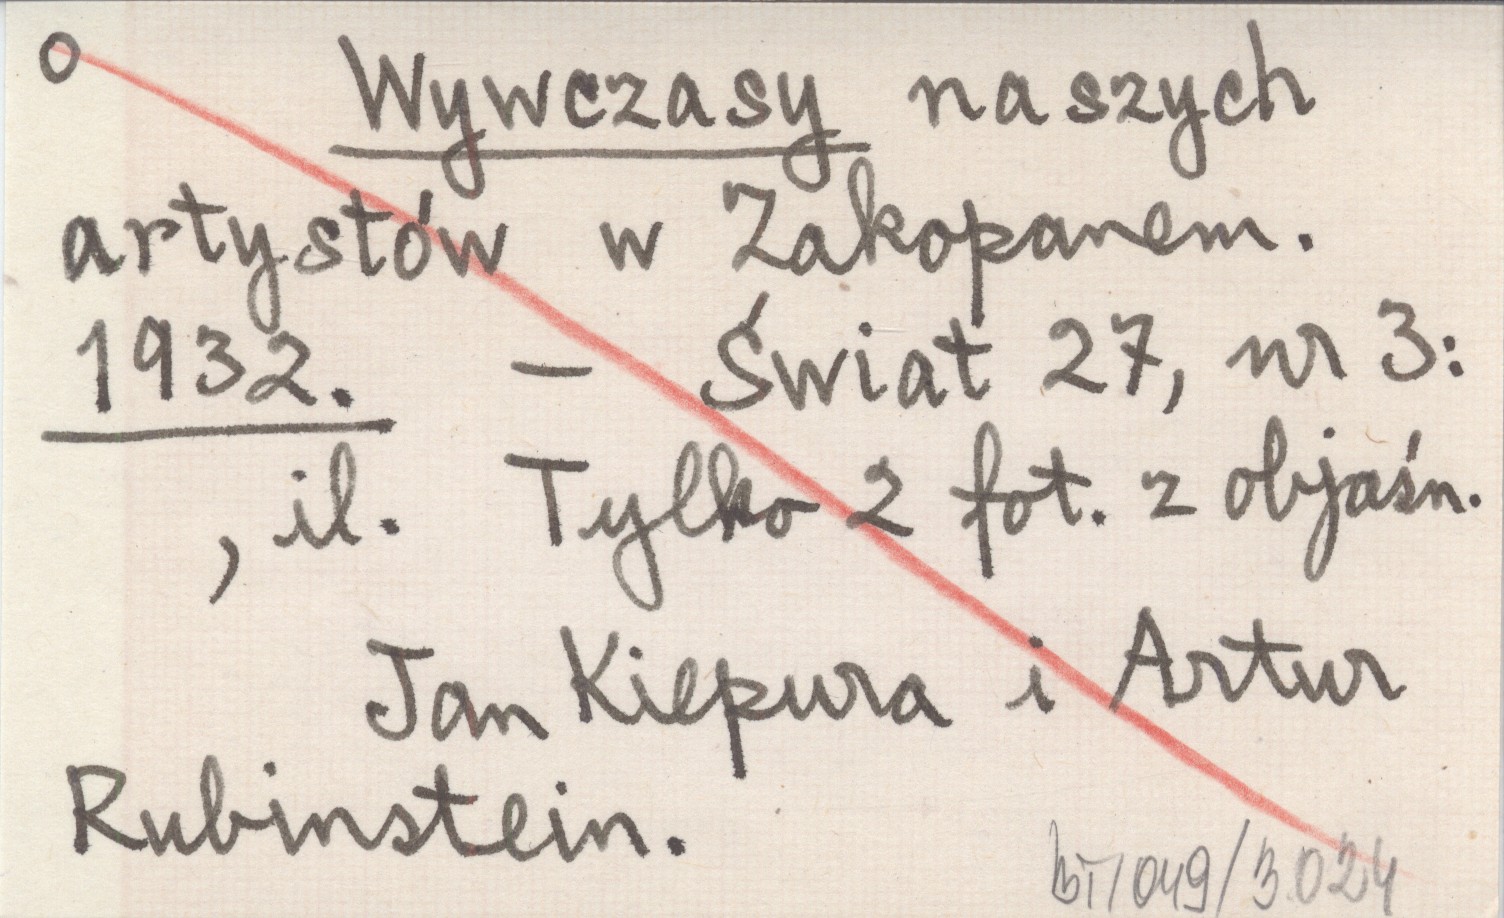 o Wywczasy naszych
artystów w Zakopanem.
1932. – Świat 27, nr 3:
, il. Tylko 2 fot. z objaśn.
Jan Kiepura i Artur
Rubinstein.
BT/049/3.024